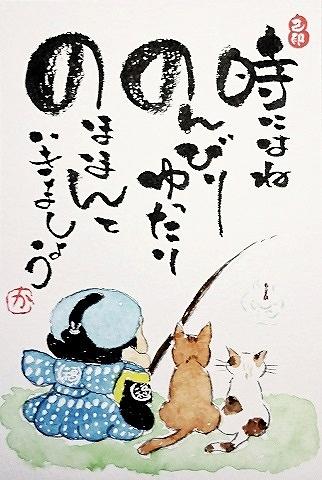 時にはね
のんびり
ゆったり
のほほんと
いきましょう
か